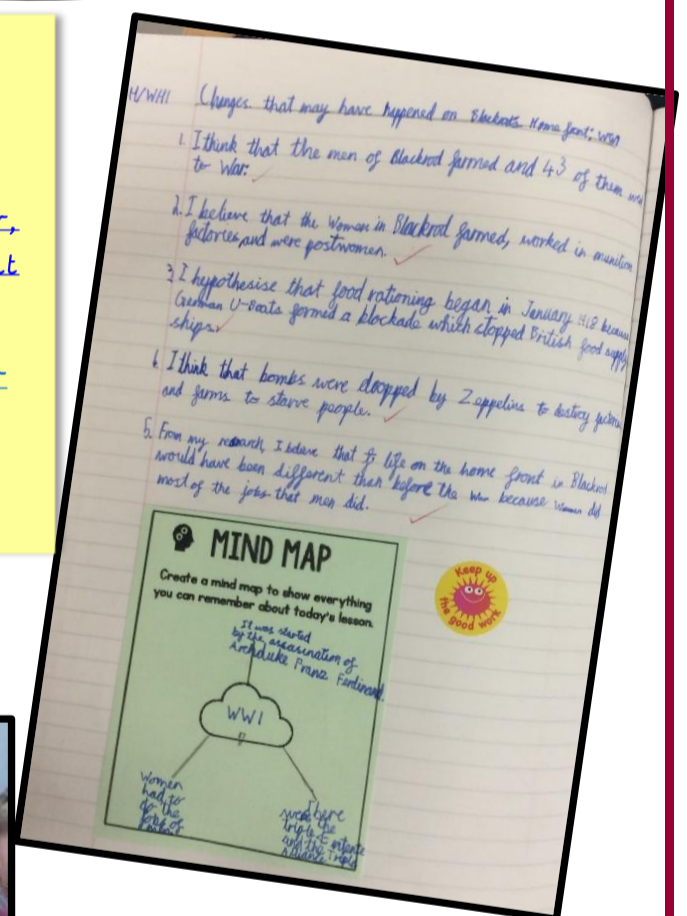 r,
t
H/WHI Changes that may have happened on Blackrods Home front; WW1
1. I think that the men of Blackrod farmed and 43 of them
to War.
2. I believe that the Women in Blackrod farmed, worked in munition
factories, and were postwomen.
3. I hypothesise that food rationing began in January 1918 because
German U-Boats formed a blockade which stopped British food supply
ships.
4. I think that bombs were dropped by Zeppelins to destroy
and farms to starve people.
5. From my research, I believe that life on the home front in Blackrod
would have been different than before the War because Women did
most of the jobs that men did.
MIND MAP
Create a mind map to show everything
you can remember about today's lesson.
It was started
by the assasination of
Archduke Franz Ferdinand.
WW1
Women
had to
do the
jobs of
There
were the
triple entente
and the Triple
Alliance
Keep up
the good work